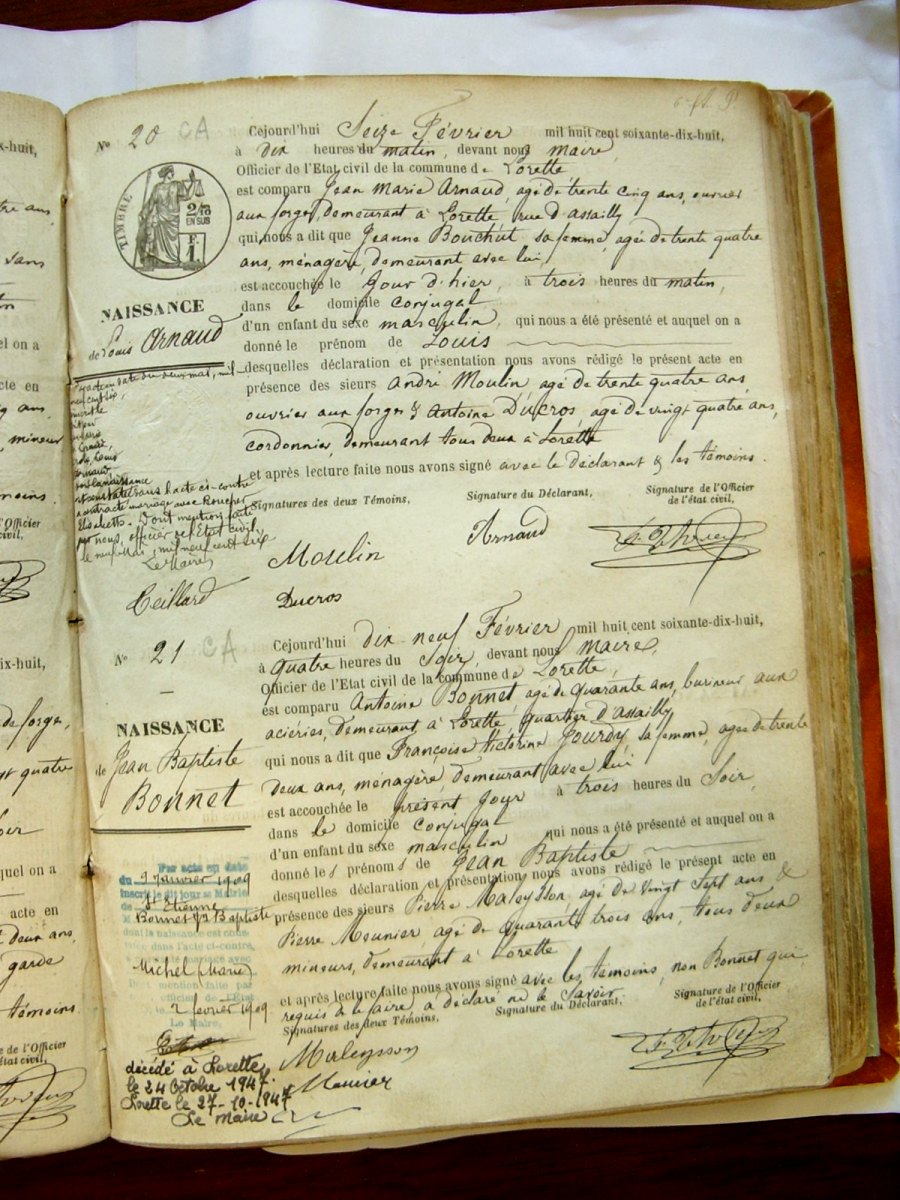 x-huit,
tre ans
sans
el on a
cte en
ans,
mineur
moins.
l'Officier
civil,
ix-huit,
de forges,
quatre
quel on a
acte en
deux ans,
garde
témoins.
e de l'Officier
état civil,
No 20 CA
TIMBRE
2/10
EN SUS
F.
1.
NAISSANCE
de Louis Arnaud
Cejourd'hui Seize Février mil huit cent soixante-dix-huit,
à dix heures du matin, devant nous maire,
Officier de l'Etat civil de la commune de Lorette
est comparu Jean Marie Arnaud, agé de trente cinq ans, ouvrier
aux forges, demeurant à Lorette, rue d'assailly
qui nous a dit que Jeanne Bouchut sa femme, agée de trente quatre
ans, ménagère, demeurant avec lui,
est accouchée le jour d'hier, à trois heures du matin,
dans le domicile conjugal
d'un enfant du sexe masculin, qui nous a été présenté et auquel on a
donné le prénom de Louis
desquelles déclaration et présentation nous avons rédigé le présent acte en
présence des sieurs André Moulin agé de trente quatre ans,
ouvrier aux forges & Antoine Ducros, agé de vingt quatre ans,
cordonnier, demeurant tous deux à Lorette
et après lecture faite nous avons signé avec le déclarant & les témoins.
Signatures des deux Témoins, Signature du Déclarant, Signature de l'Officier
de l'état civil,
Moulin Arnaud
Ducros
acte en date du deux mai, mil
neuf cent six,
Louis
Arnaud,
dont la naissance
est constatée dans l'acte ci-contre
a contracté mariage avec
Dont mention faite
par nous, officier de l'Etat civil,
le neuf Mai, mil neuf cent six
Le Maire,
Teillard
No 21 CA
NAISSANCE
de Jean Baptiste
Bonnet
Cejourd'hui dix neuf Février mil huit cent soixante-dix-huit,
à quatre heures du Soir, devant nous maire,
Officier de l'Etat civil de la commune de Lorette,
est comparu Antoine Bonnet, agé de quarante ans, burineur aux
aciéries, demeurant à Lorette, quartier d'assailly
qui nous a dit que Françoise Victorine Jourdy, sa femme, agée de trente
deux ans, ménagère, demeurant avec lui
est accouchée le présent jour à trois heures du Soir,
dans le domicile conjugal
d'un enfant du sexe masculin qui nous a été présenté et auquel on a
donné les prénoms de Jean Baptiste
desquelles déclaration et présentation nous avons rédigé le présent acte en
présence des sieurs Pierre Maleysson, agé de vingt sept ans &
Pierre Meunier, agé de quarante trois ans, tous deux
mineurs, demeurant à Lorette
et après lecture faite nous avons signé avec les témoins, non Bonnet qui
requis de le faire, a déclaré ne le Savoir.
Signatures des deux Témoins, Signature du Déclarant, Signature de l'Officier
de l'état civil,
Maleysson
Meunier
Par acte en date
du 9 Janvier 1909
inscrit le dit jour à Mairie
de St Etienne
Bonnet Jn Baptiste
dont la naissance est cons-
tatée dans l'acte ci-contre,
a contracté mariage avec
Michel Marie
Dont mention faite par
officier de l'Etat
2 février 1909
Le Maire,
décédé à Lorette
le 24 Octobre 1947.
Lorette le 27-10-1947
Le maire